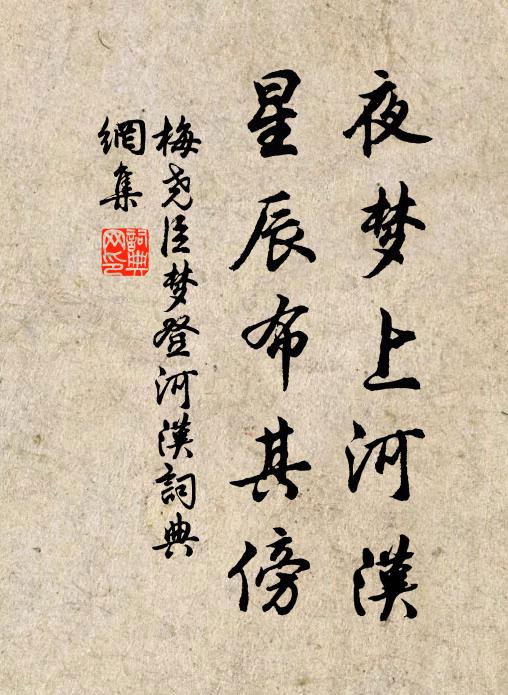 夜梦上河漢
星辰布其傍
梅尧臣梦登河漢詞典
網集
詞典网印